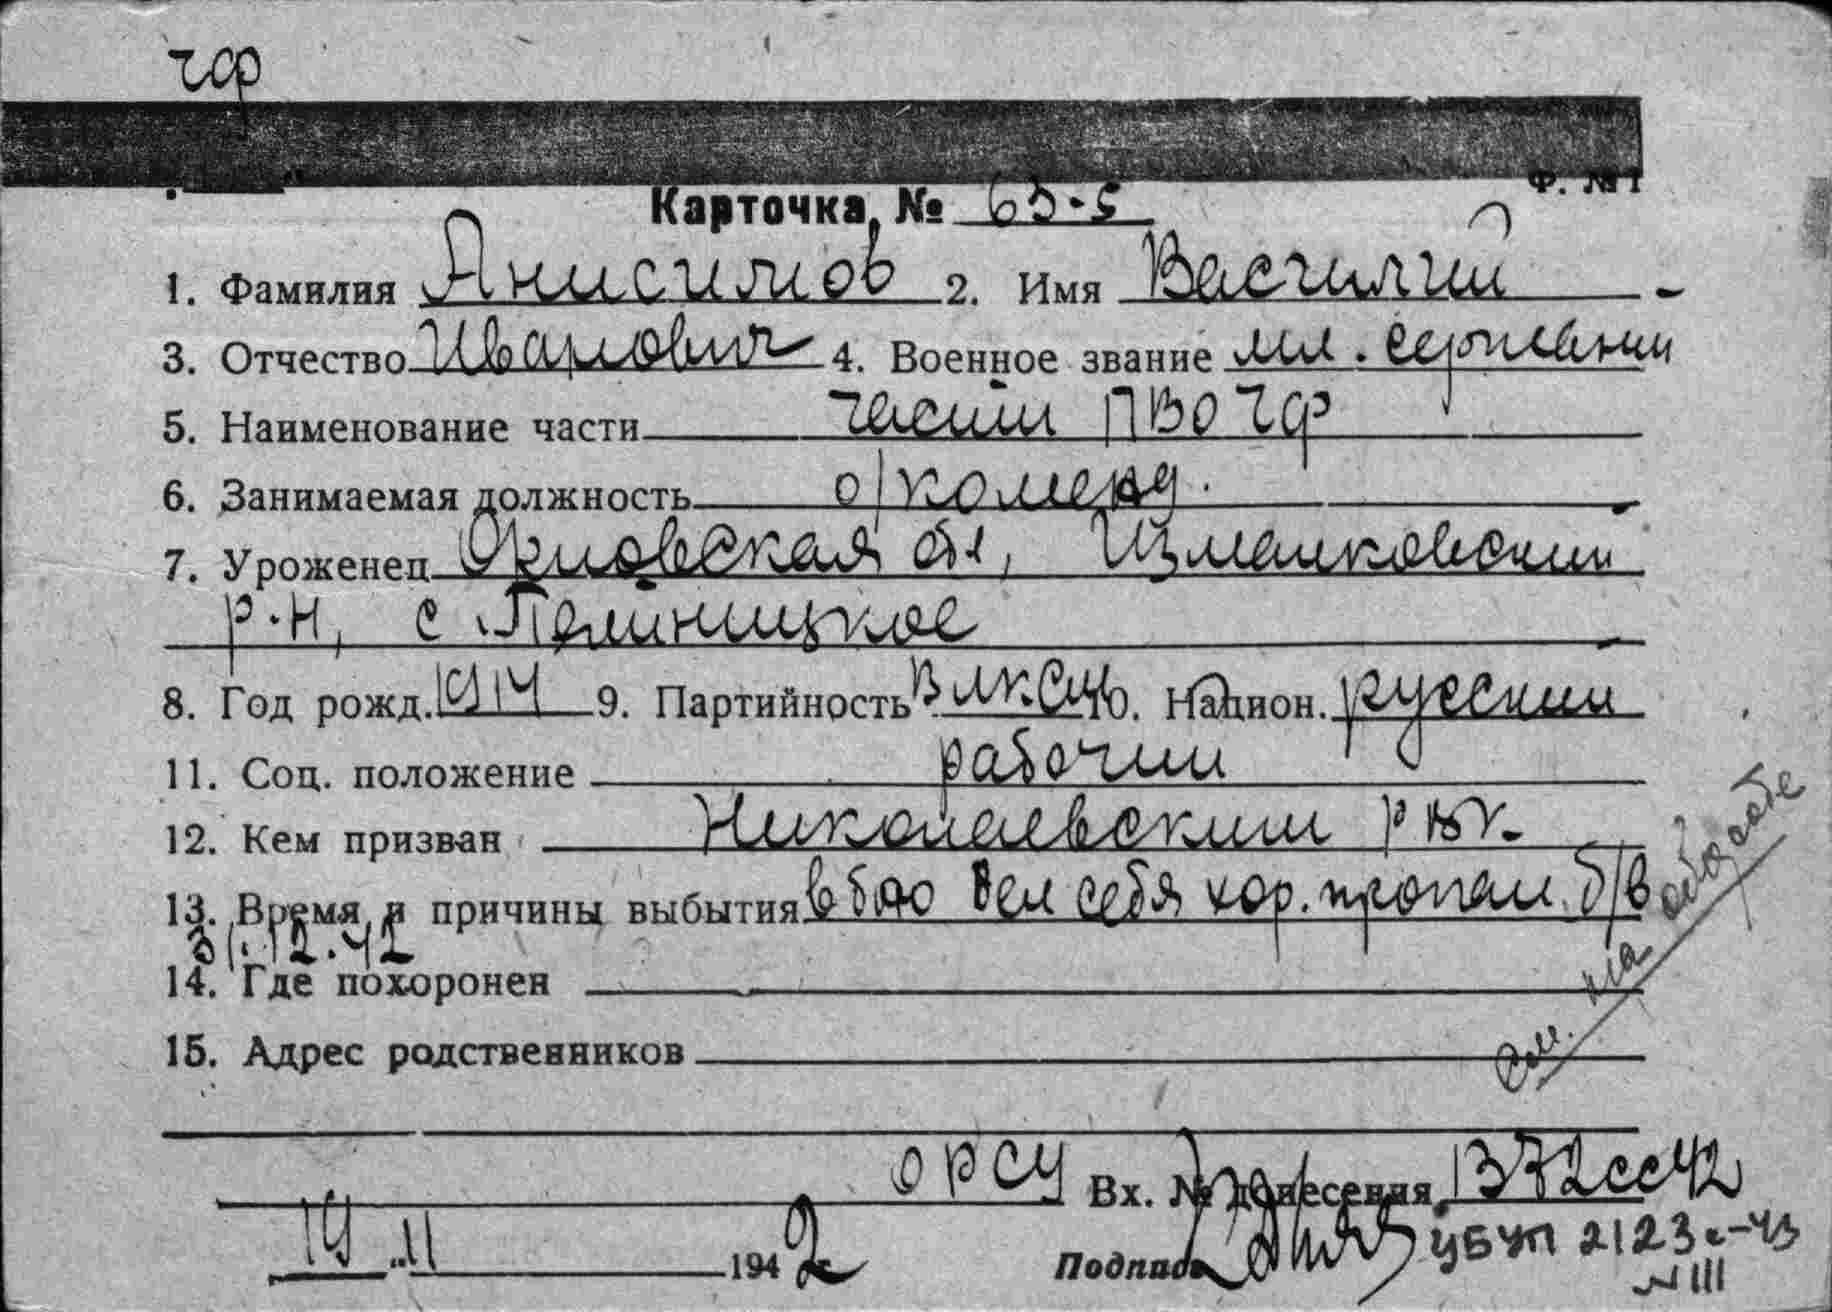 ЧФ
Ф. №1
Карточка № 63-5
1. Фамилия Анисимов 2. Имя Василий
3. Отчество Иванович 4. Военное звание мл. сержант
5. Наименование части части ПВО ЧФ
6. Занимаемая должность о/команд.
7. Уроженец Орловская обл, Измалковский
р-н, с.
8. Год рожд. 1914 9. Партийность ВЛКСМ 10. Национ. русский
11. Соц. положение рабочий
12. Кем призван Николаевским РВК.
13. Время и причины выбытия в бою вел себя хор. пропал б/в
31.12.42
14. Где похоронен
15. Адрес родственников
см. на обороте
ОРСУ Вх. № донесения 1372сс42
19.11 1942 Подпись УБУП 2123с-43
№ 111